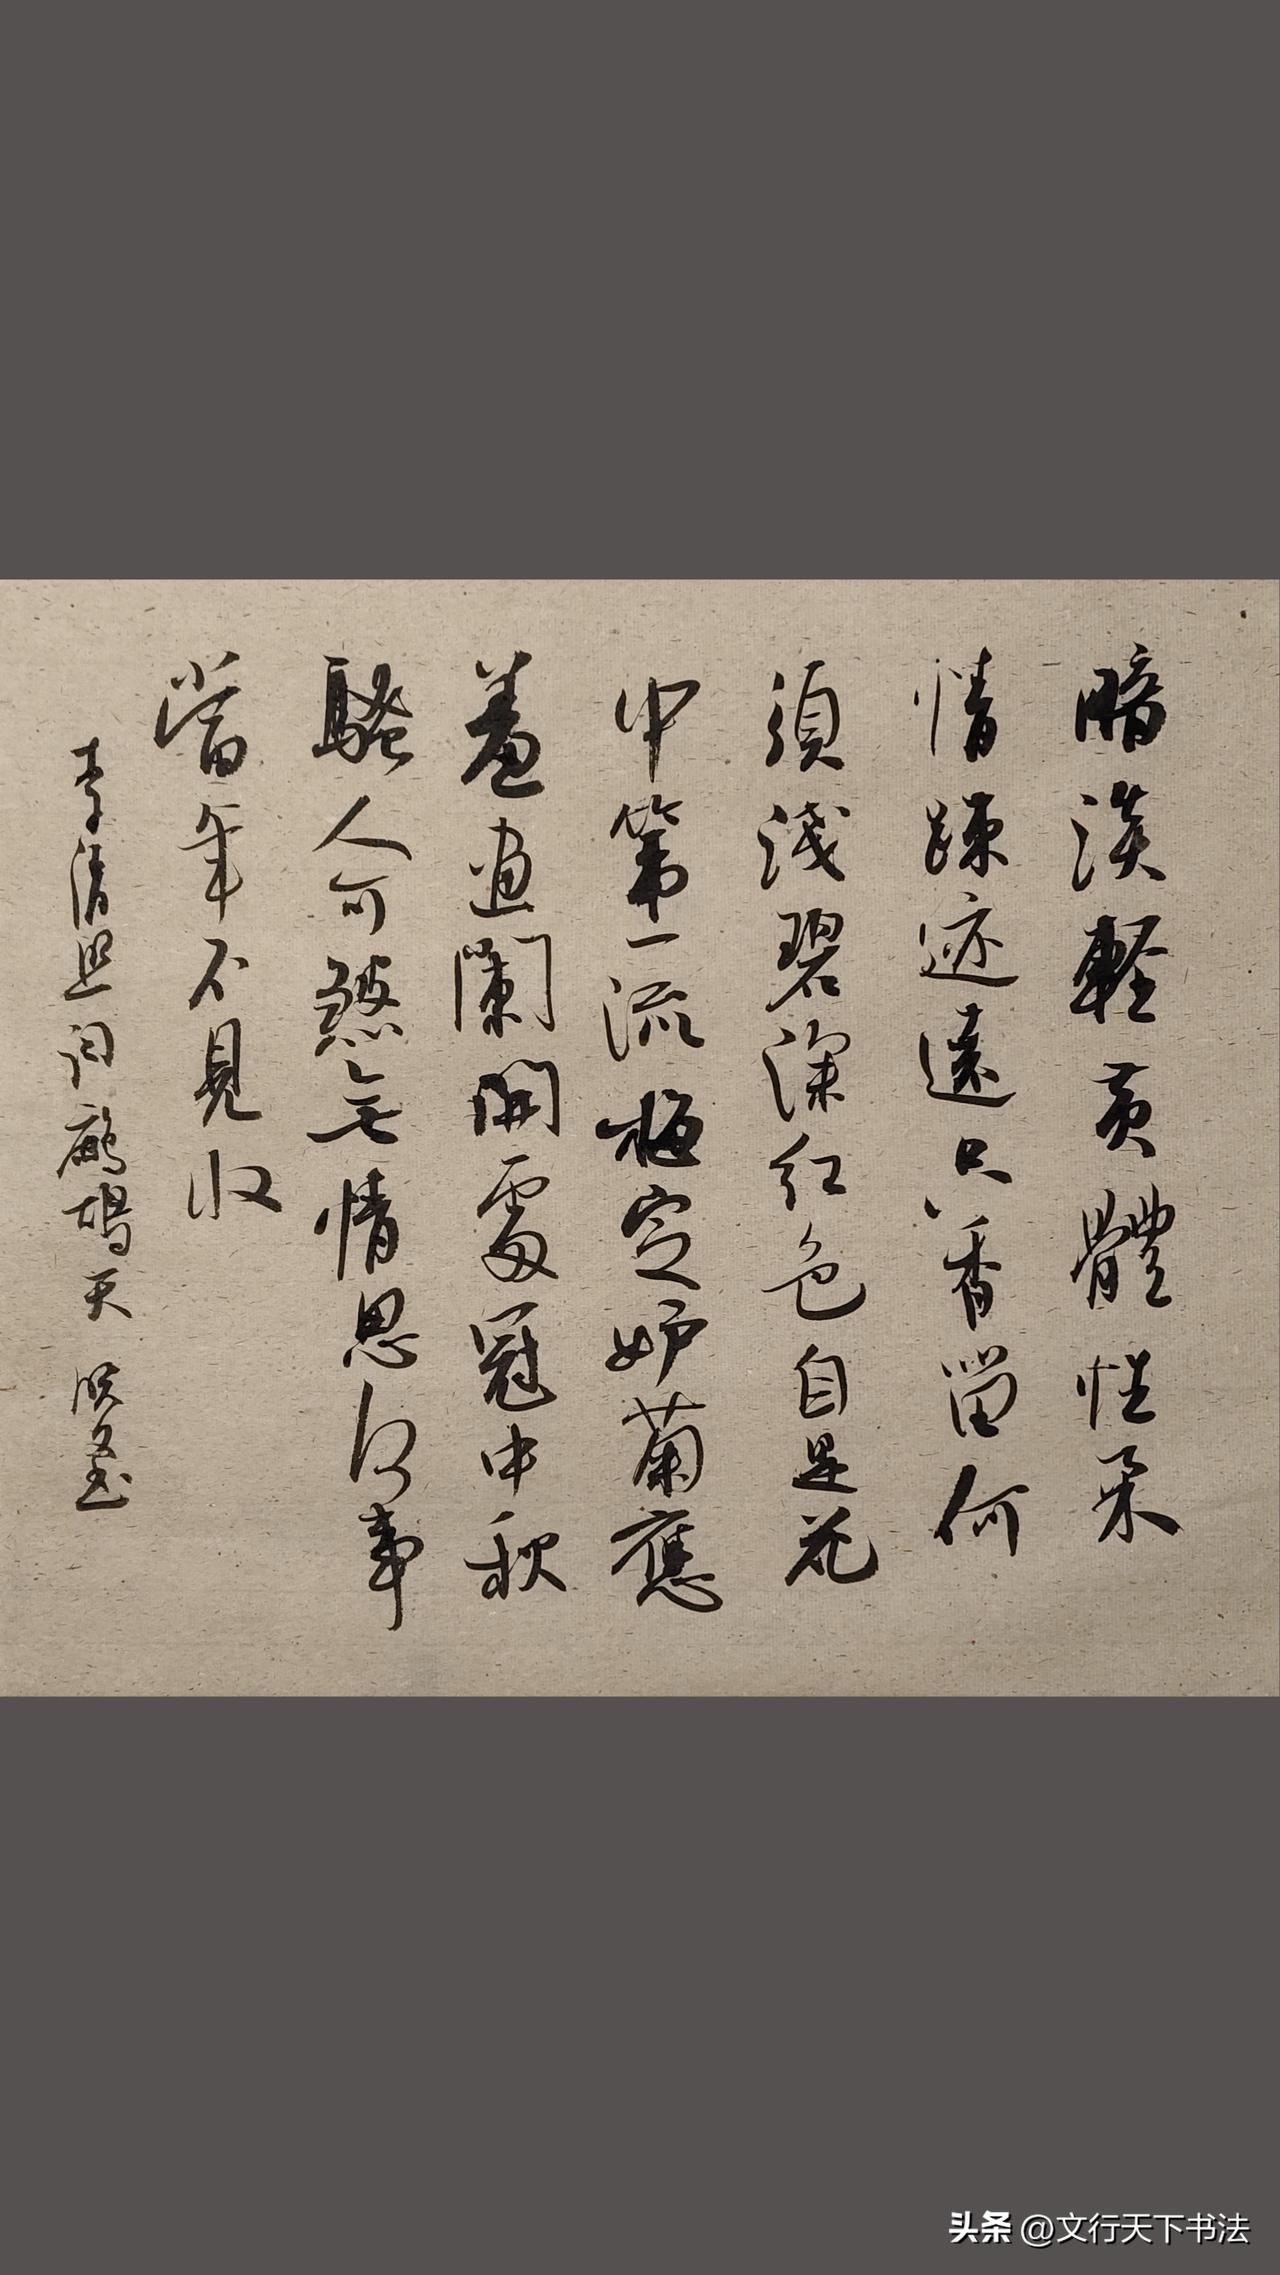 暗淡輕黄體性柔
情疎迹遠只香留何
須淺碧深紅色自是花
中第一流梅定妒菊應
羞畫闌開處冠中秋
騷人可煞無情思何事
當年不見收
李清照词鹧鸪天
头条 @文行天下书法